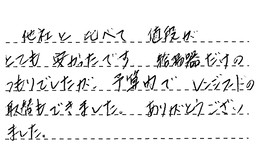 他社と比べて 値段が
とても安かったです 給湯器だけの
つもりでしたが、予算内で レンジフードの
取替もできました。ありがとうござい
ました。